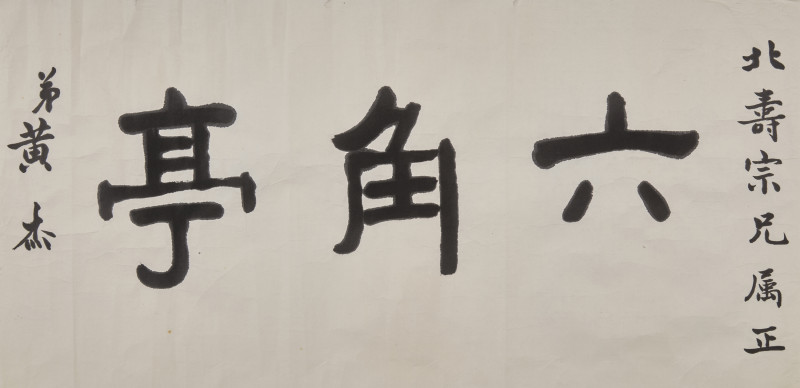 北壽宗兄属正
六角亭
弟黄杰